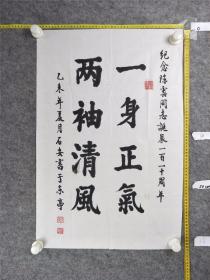 纪念陈云同志诞辰一百一十周年
一身正氣
两袖清風
乙未年夏月石安書于京亭